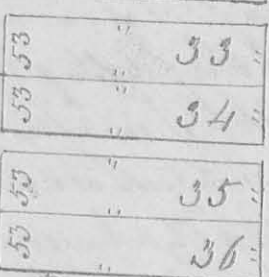 53 " 33 "
53 " 34 "
53 " 35 "
53 " 36 "